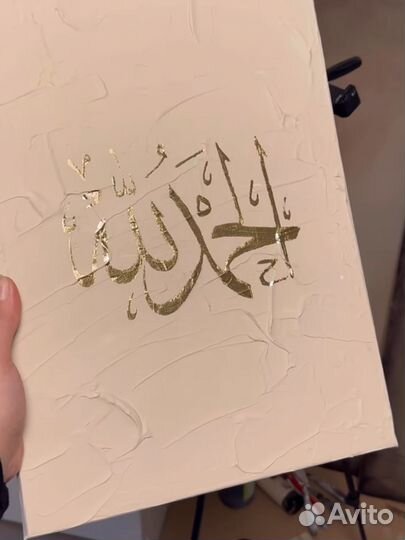 الحمد لله
Avito